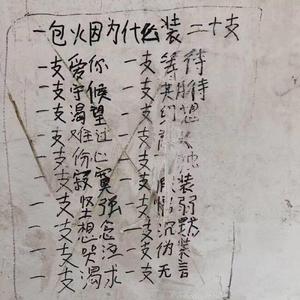 一包烟为什么装二十支
一支爱你 一支等待
一支守候 一支期待
一支渴望 一支幻想
一支难过 一支
一支份心 一支
一支寂寞 一支 装
一支坚强 一支 弱
一支想念 一支沉默
一支哭泣 一支伪装
一支渴求 一支无言